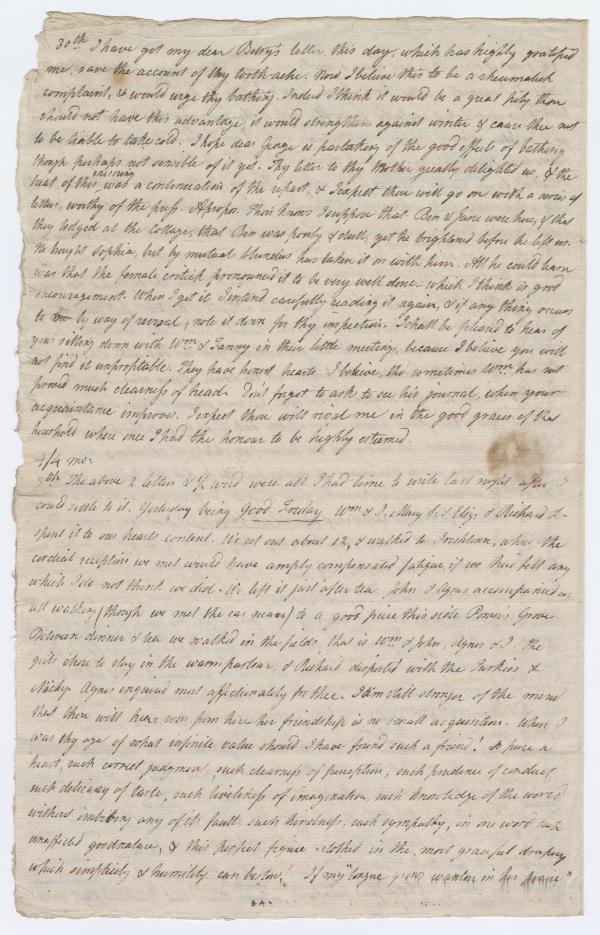 30th I have got my dear Betsy's letter this day, which has highly gratified
me, save the account of thy tooth-ache. Now I believe this to be a rheumatick
complaint, & would urge thy bathing. Indeed I think it would be a great pity thou
should not have this advantage it would strengthen against winter & cause thee not
to be liable to take cold. I hope dear George is partaking of the good effects of bathing
though perhaps not sensible of it yet. Thy letter to thy Mother greatly delighted us, & the
treat of this evening was a continuation of the repast, & I expect thou will go on with a series of
letters, worthy of the press. Apropos. Thou knows I suppose that Ben & Jane were here, & that
they lodged at the Cottage, that Ben was poorly & dull, yet he brightened before he left us.
He bought Sophia, but by mutual blunders has taken it on with him. All he could learn
was that the female critick pronounced it to be very well done which I think is good
encouragement. When I get it I intend carefully reading it again, & if any thing occurs
to by way of revisal, note it down for thy inspection. I shall be pleased to hear of
your sitting down with Wm. & Fanny in their little meeting, because I believe you will
not find it unprofitable. They have honest hearts I believe, tho' sometimes Wm. has not
proved much clearness of head. Don't forget to ask to see his journal, when your
acquaintance improves. I expect thou will rival me in the good graces of the
household where once I had the honour to be highly esteemed.
4/4 mo.
The above 2 letters & ½ word were all I had time to write last night after I
could settle to it. Yesterday being Good Friday Wm & I, Mary & Eliz. & Richard
spent it to our hearts content. We set out about 12, & walked to Irishtown, where the
cordial reception we met would have amply compensated fatigue, if we had felt any
which I do not think we did. We left it just after tea. John & Agnes accompanied us
all walking (though we met the car near) to a good piece this side Power's Grove.
Between dinner & tea we walked in the fields, that is Wm. & John, Agnes & I. The
girls chose to stay in the warm parlour, & Richard disported with the Turkies &
Agnes enquired most affectionately for thee. I am still stronger of the mind
that thou will hear soon from her her friendship is no small acquisition. When I
was thy age of what infinite value should I have found such a friend! So pure a
heart, such correct judgment, such clearness of perception, such prudence of conduct,
such delicacy of taste, such liveliness of imagination, such knowledge of the world
without imbibing any of its faults such kindness, such sympathy, in one word such
unaffected goodnature, & this perfect figure clothed in the most graceful drapery
which simplicity & humility can bestow. If my "tongue grows wanton in her praise"